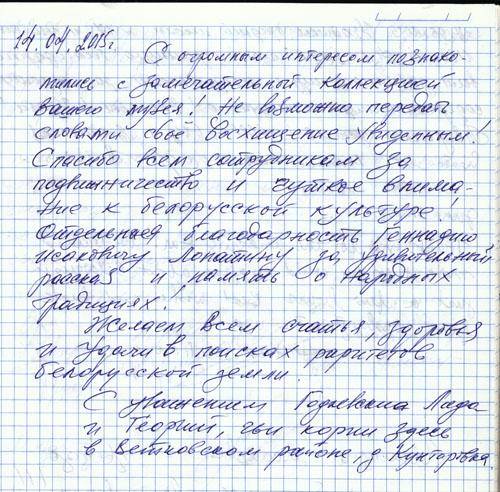 14.04.2015г.
С огромным интересом познако-
мились с замечательной коллекцией
вашего музея! Не возможно передать
словами своё восхищение увиденным!
Спасибо всем сотрудникам за
подвижничество и чуткое внима-
ние к белорусской культуре!
Отдельная благодарность Геннадию
Исааковичу Лопатину за удивительный
рассказ и память о народных
традициях!
Желаем всем счастья, здоровья
и удачи в поисках раритетов
белорусской земли.
С уважением
и Георгий, чьи корни здесь
в Ветковском районе, д.